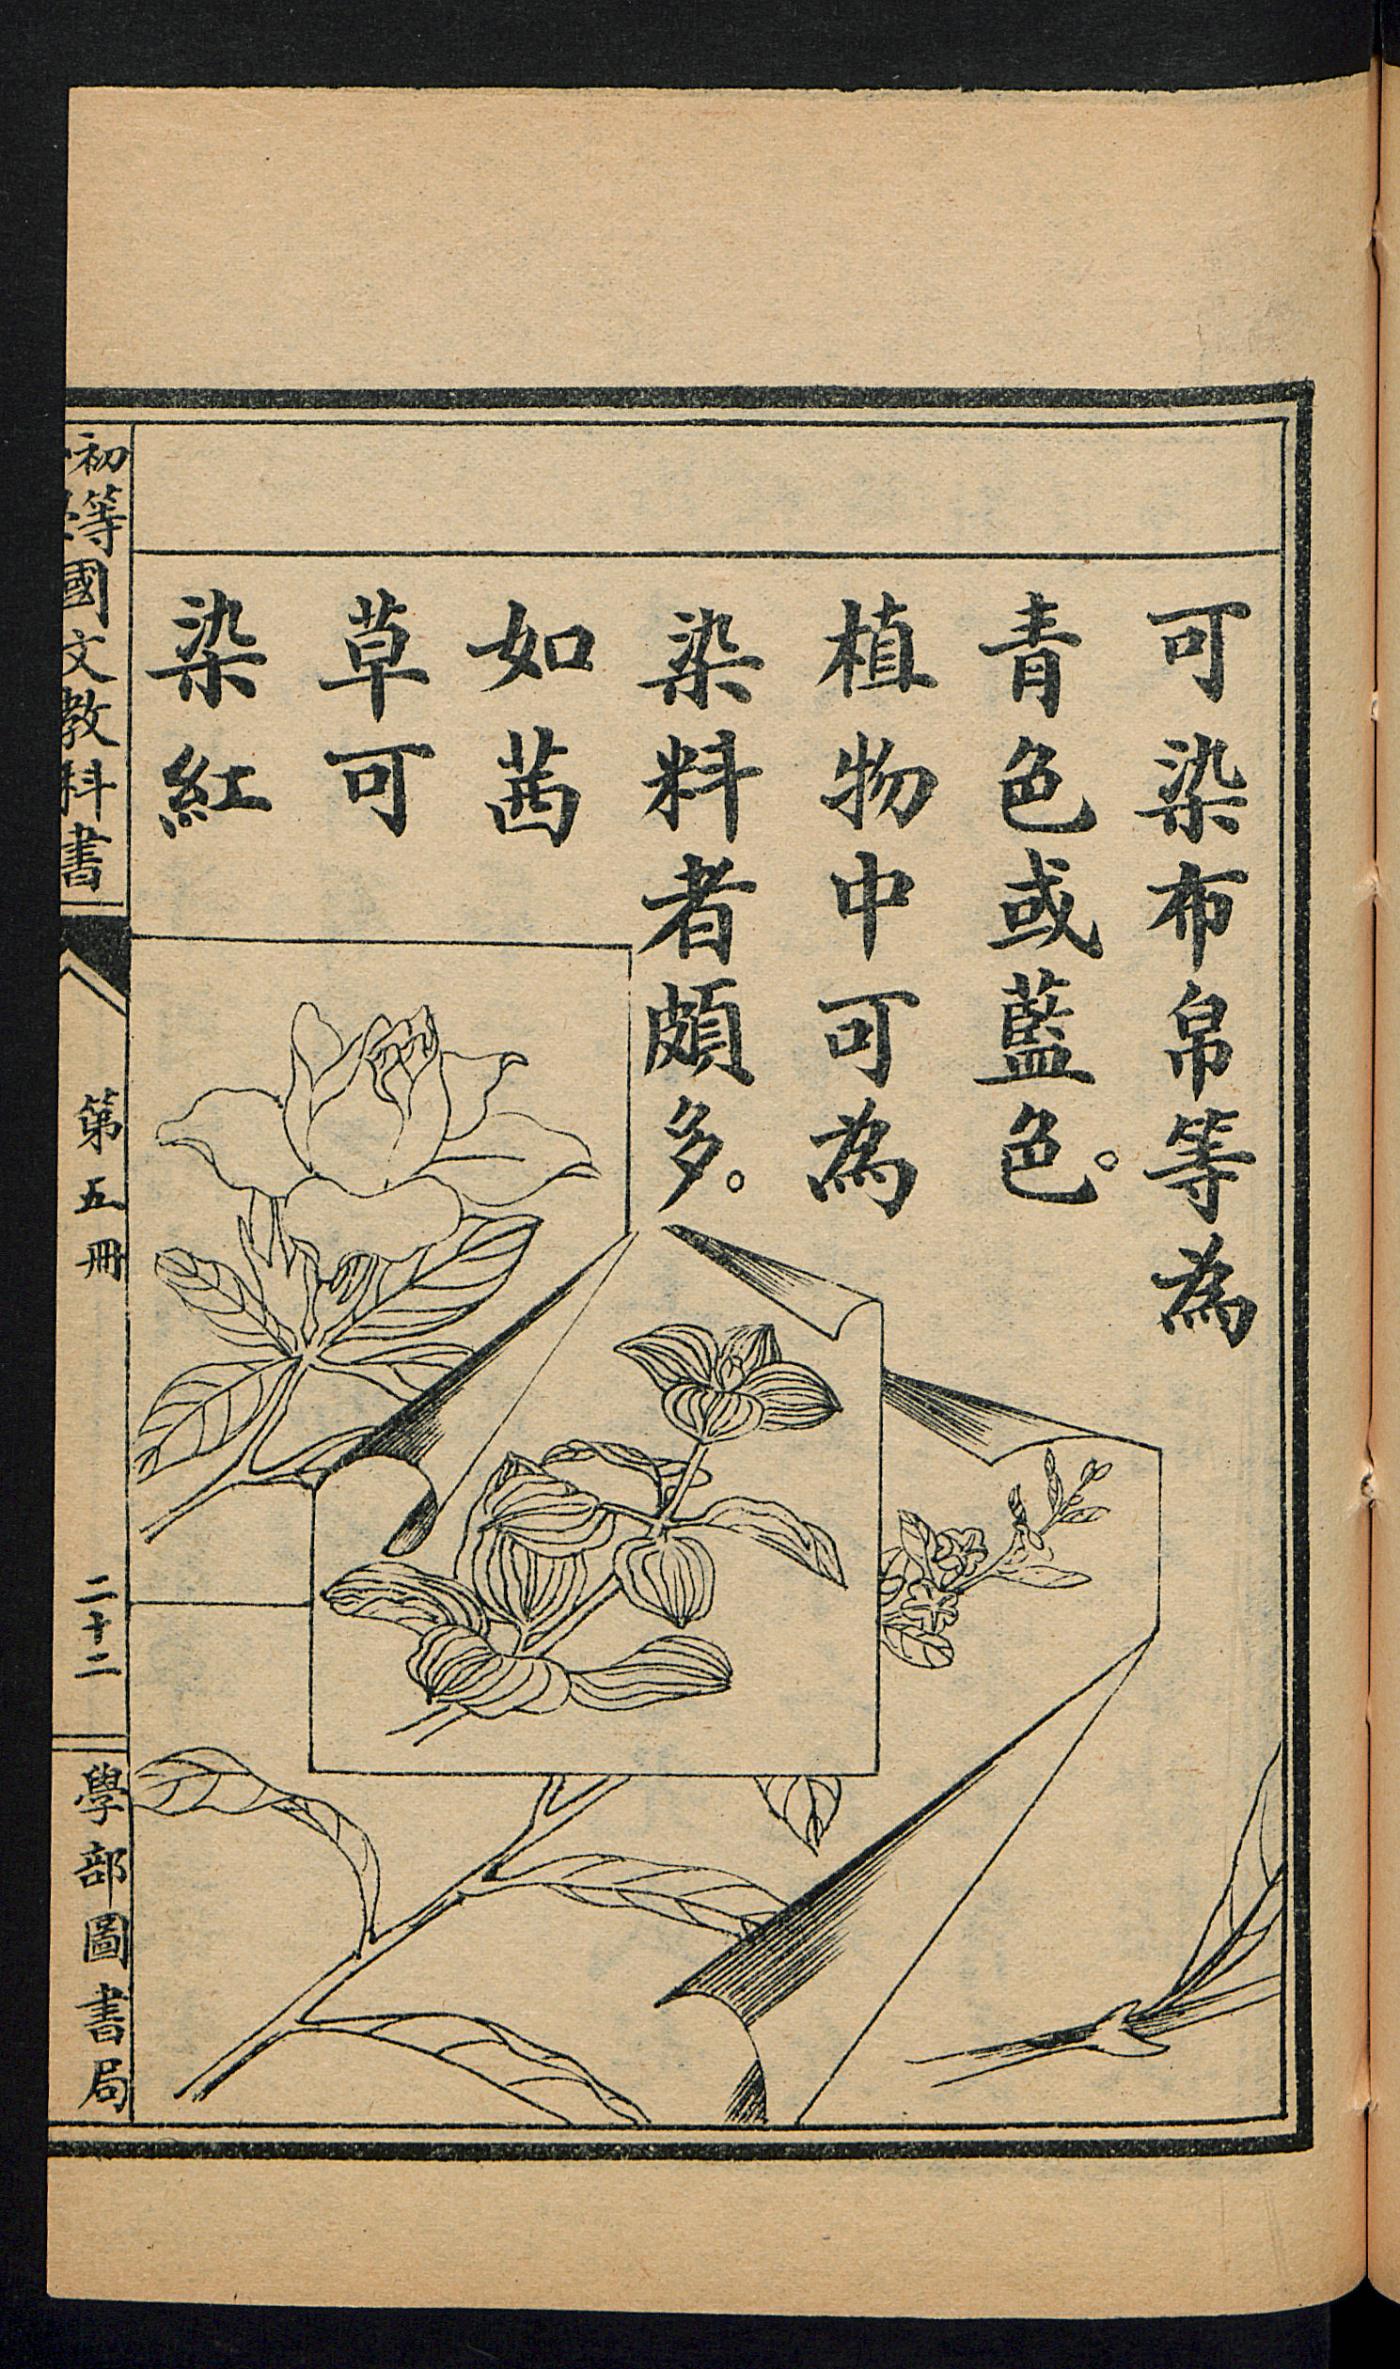 可染布帛等為
青色或藍色。
植物中可為
染料者頗多。
如茜
草可
染紅
初等國文教科書
第五冊
二十二
學部圖書局